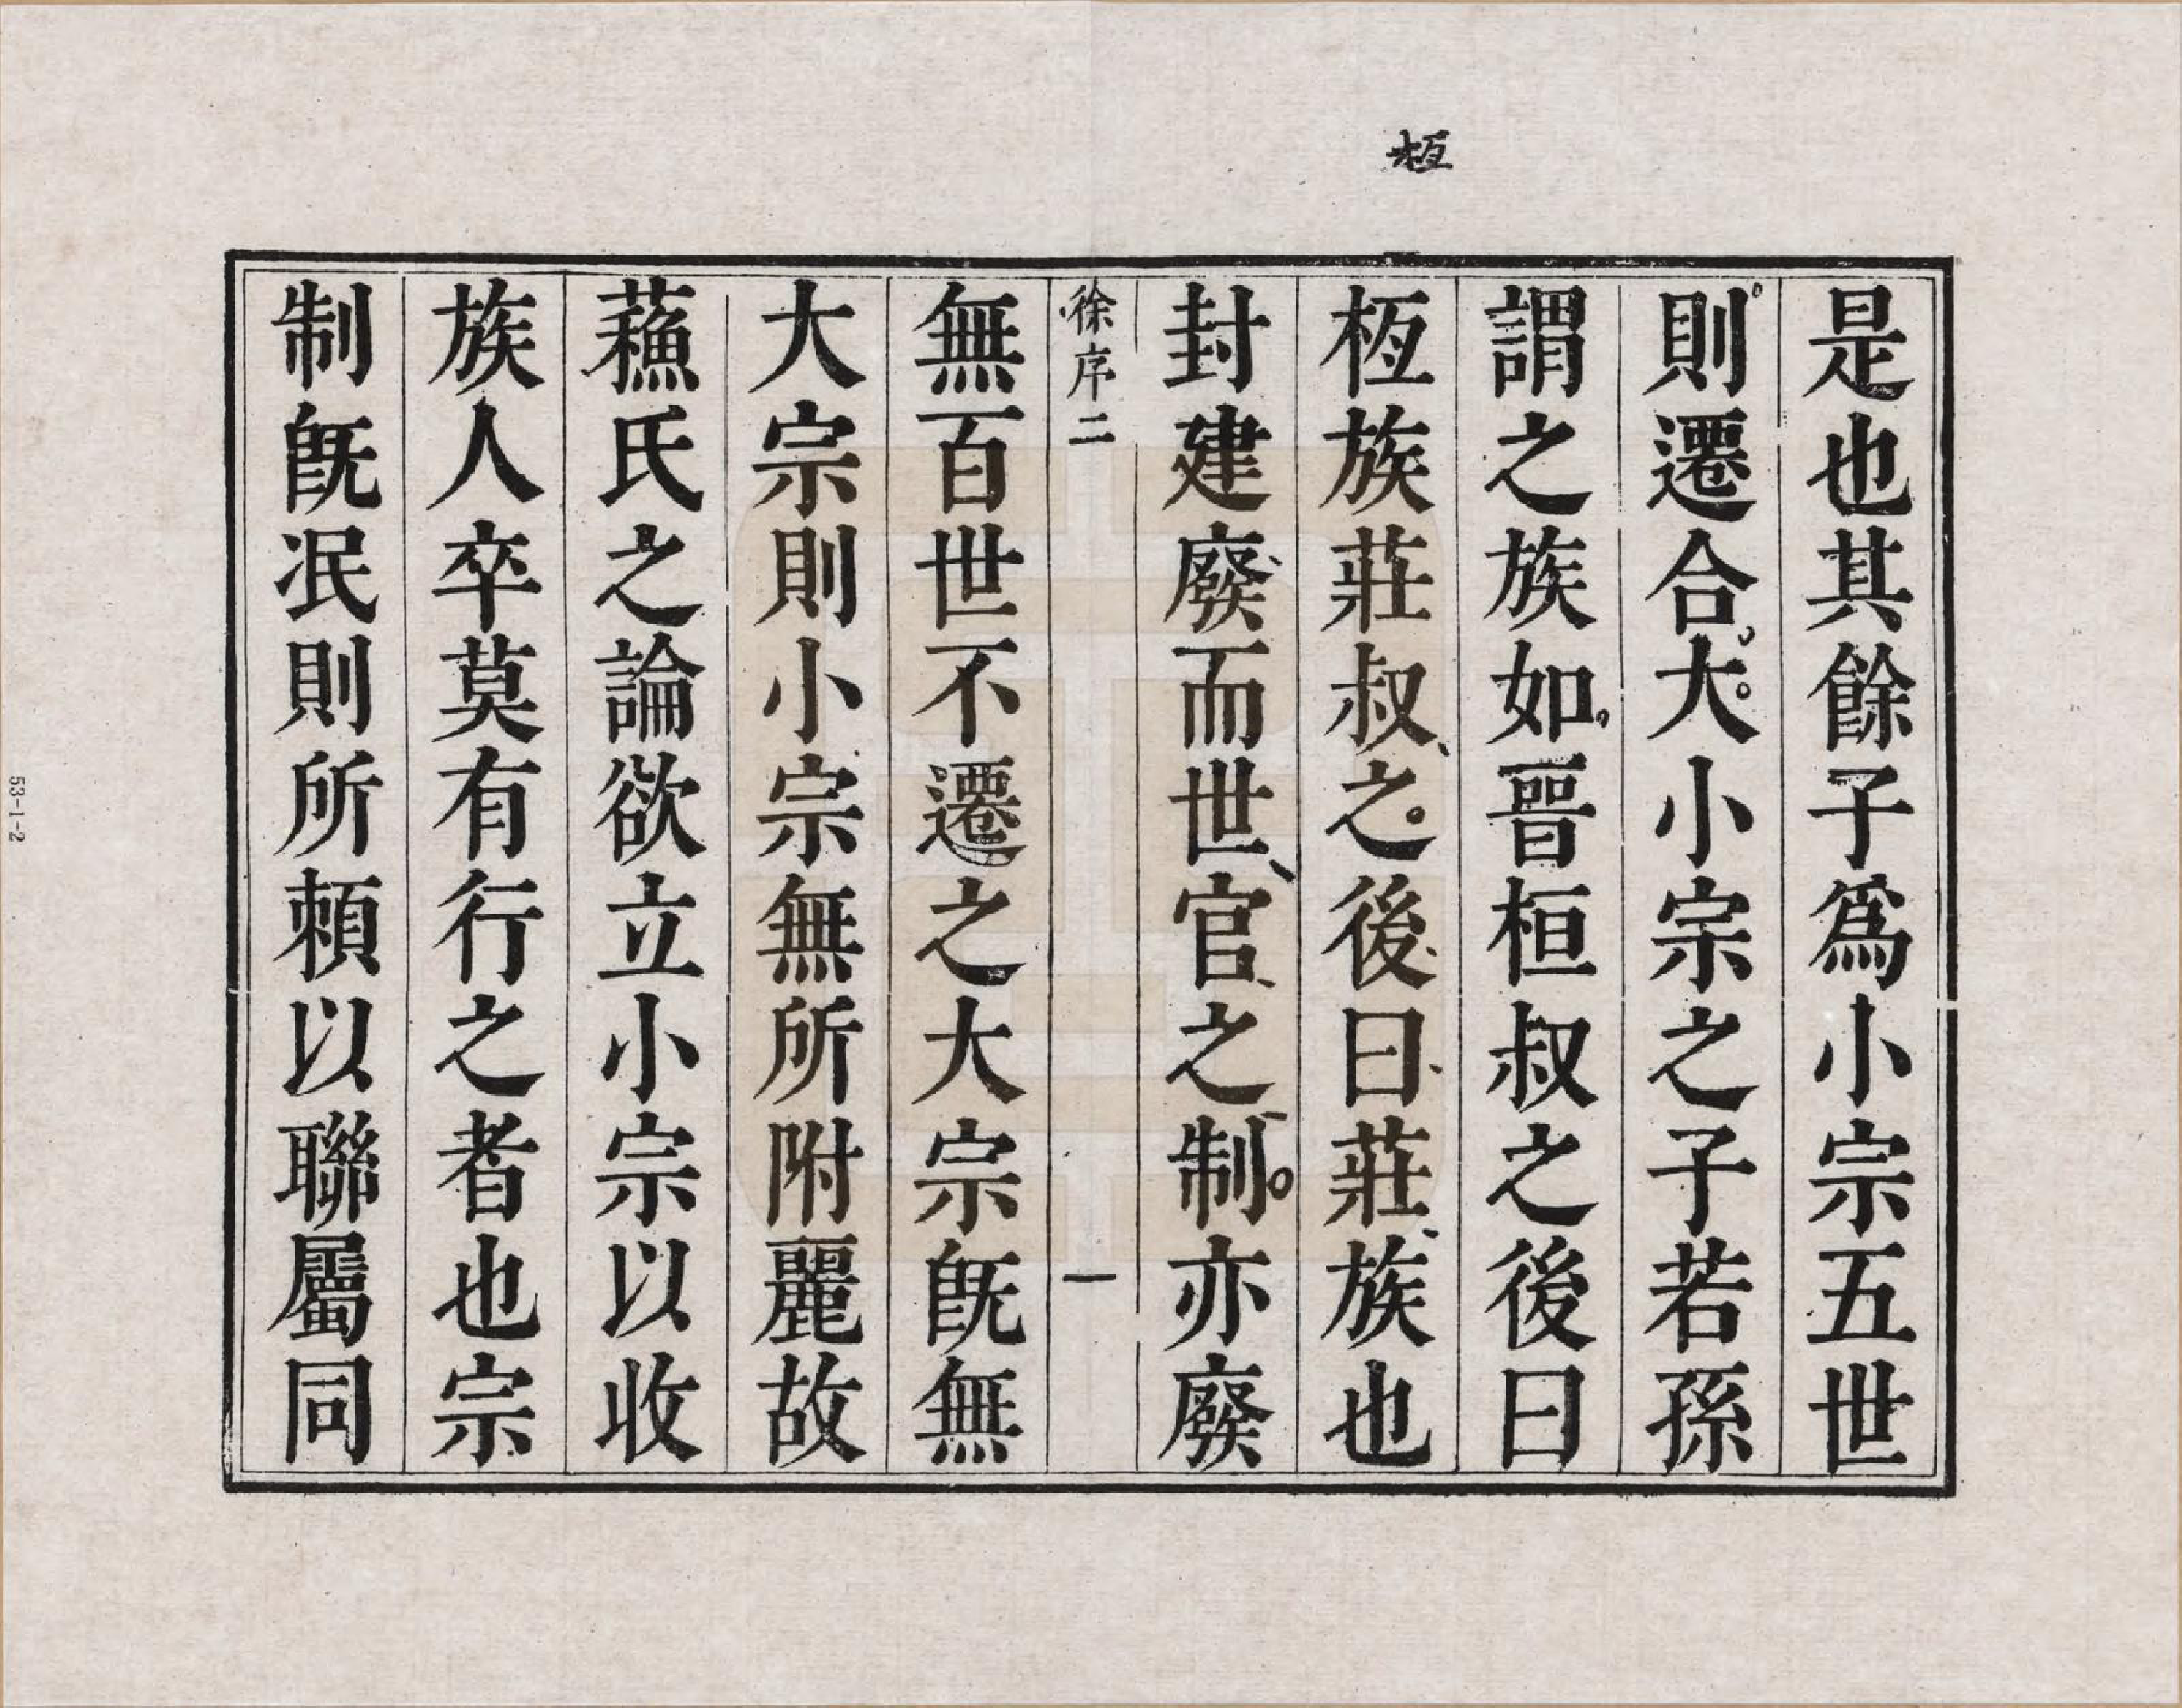 栢
是也其餘子爲小宗五世
則遷合大小宗之子若孫
謂之族如晉桓叔之後曰
桓族莊叔之後曰莊族也
封建廢而世官之制亦廢
徐序二
一
無百世不遷之大宗旣無
大宗則小宗無所附麗故
蘓氏之論欲立小宗以收
族人卒莫有行之者也宗
制旣泯則所賴以聯屬同
53-1-2